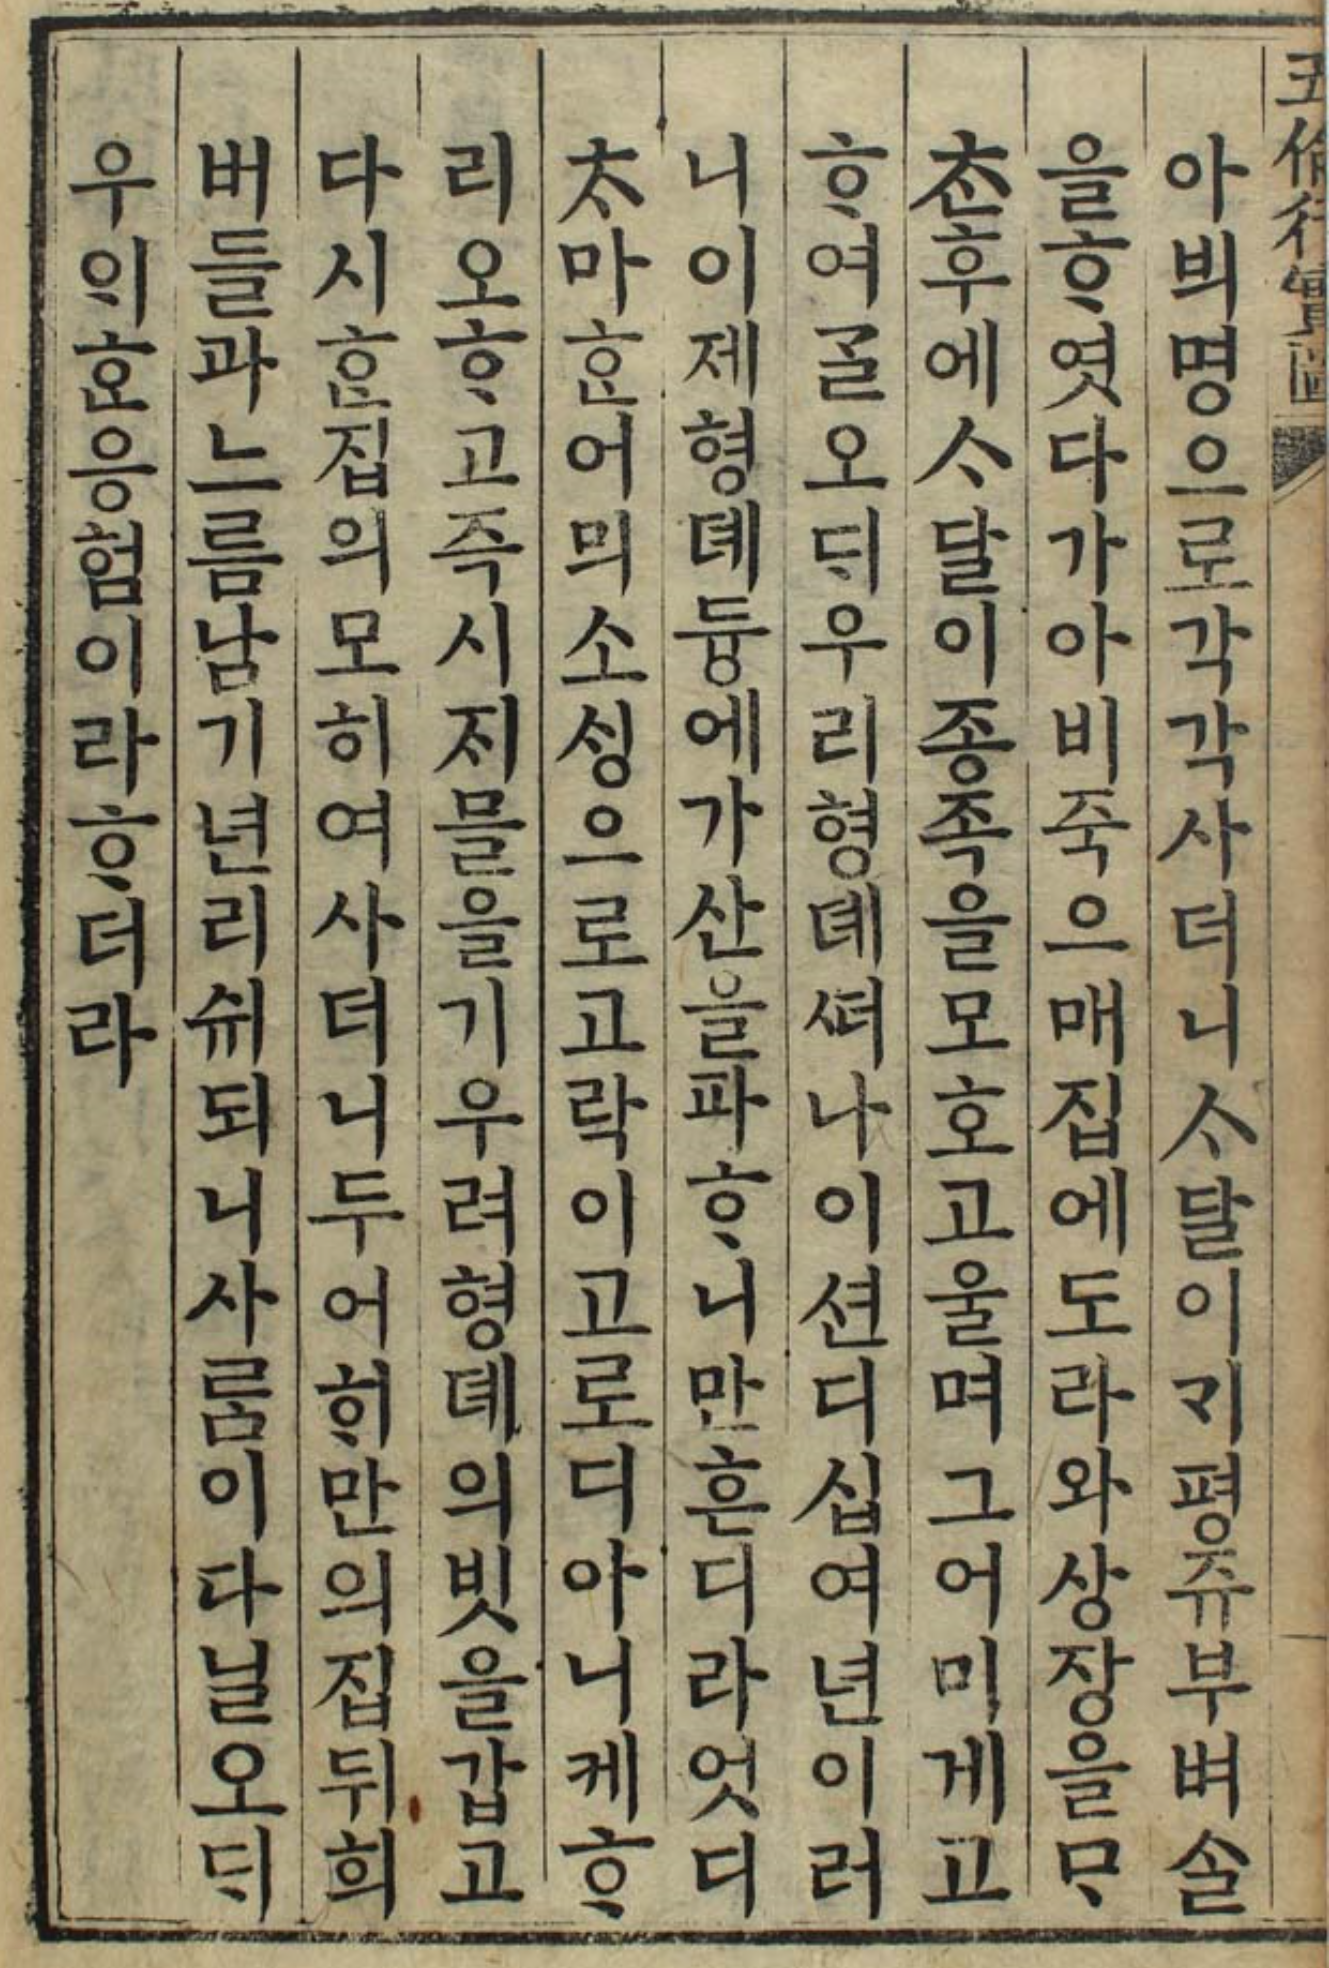 五倫行實圖
아븨명으로각각사더니ᄉᆞ달이ᄀᆡ평쥬부벼ᄉᆞᆯ
을ᄒᆞ엿다가아비죽으매집에도라와상장을ᄆᆞ
ᄎᆞᆫ후에ᄉᆞ달이종족을모호고울며그어미게고
ᄒᆞ여ᄀᆞᆯ오ᄃᆡ우리형뎨ᄯᅥ나이션디십여년이러
니이제형뎨듕에가산을파ᄒᆞ니만흔디라엇디
ᄎᆞ마ᄒᆞᆫ어믜소ᄉᆡᆼ으로고락이고로디아니케ᄒᆞ
리오ᄒᆞ고즉시ᄌᆡ믈을기우려형뎨의빗을갑고
다시ᄒᆞᆫ집의모히여사더니두어ᄒᆡ만의집뒤희
버들과느름남기년리ᄉᆔ되니사ᄅᆞᆷ이다닐오ᄃᆡ
우ᄋᆡᄒᆞᆫ응험이라ᄒᆞ더라